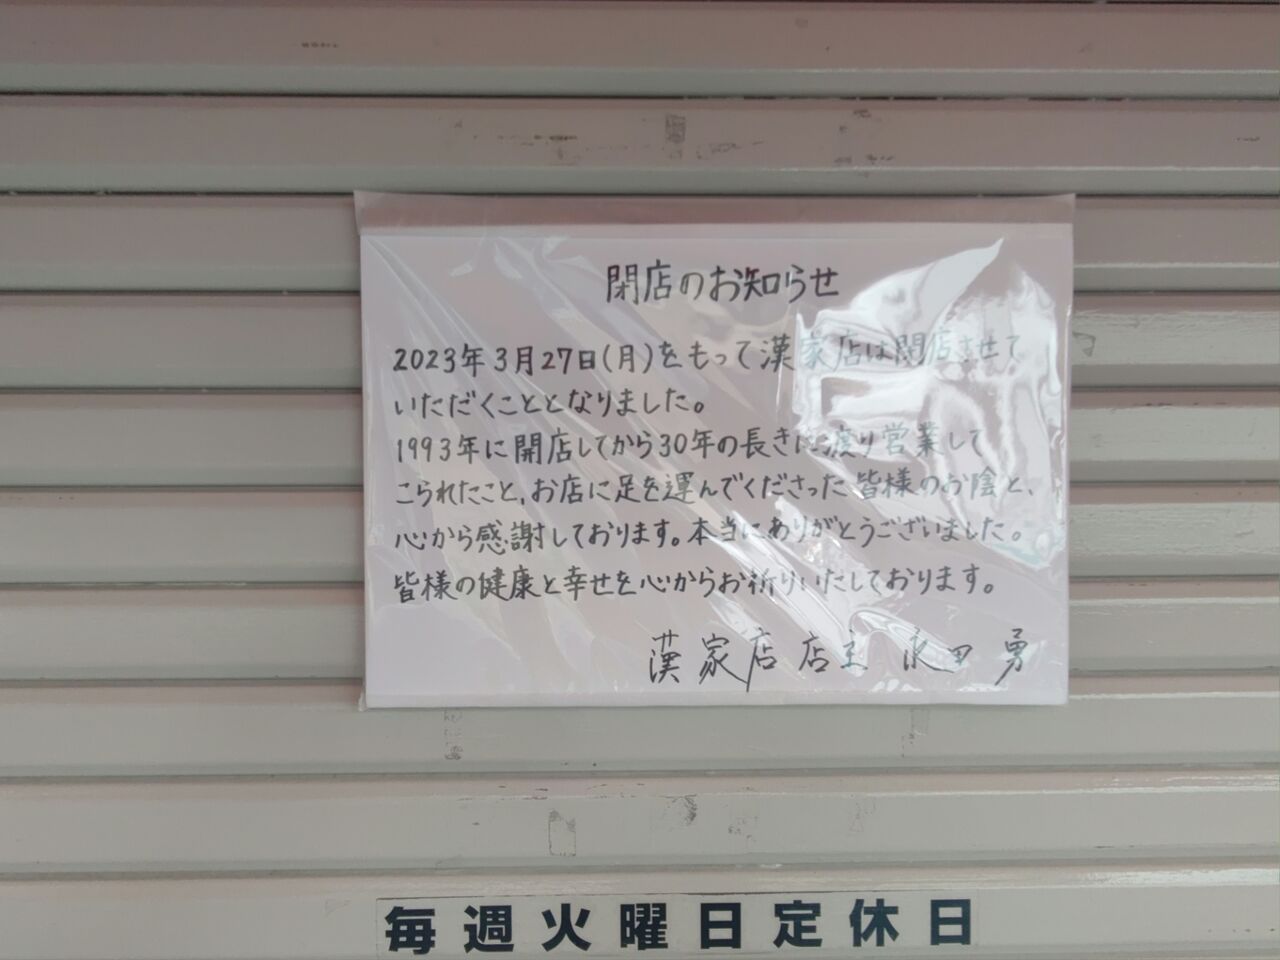 閉店のお知らせ
2023年3月27日(月)をもって漢家店は閉店させて
いただくこととなりました。
1993年に開店してから30年の長きに渡り営業して
こられたこと、お店に足を運んでくださった皆様のお陰と、
心から感謝しております。本当にありがとうございました。
皆様の健康と幸せを心からお祈りいたしております。
漢家店 店主 永田 勇
毎週火曜日定休日